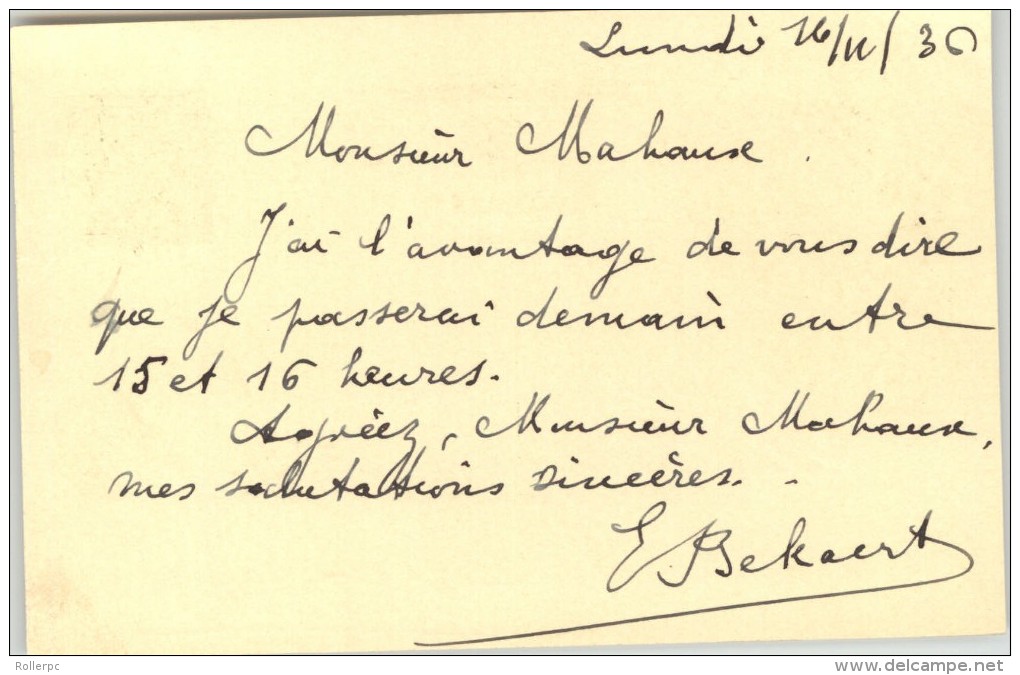 Lundi 16/11/36
Monsieur Mahaux.
J'ai l'avantage de vous dire
que je passerai demain entre
15 et 16 heures.
Agréez, Monsieur Mahaux,
mes salutations sincères.
E Bekaert
Rollerpc
www.delcampe.net